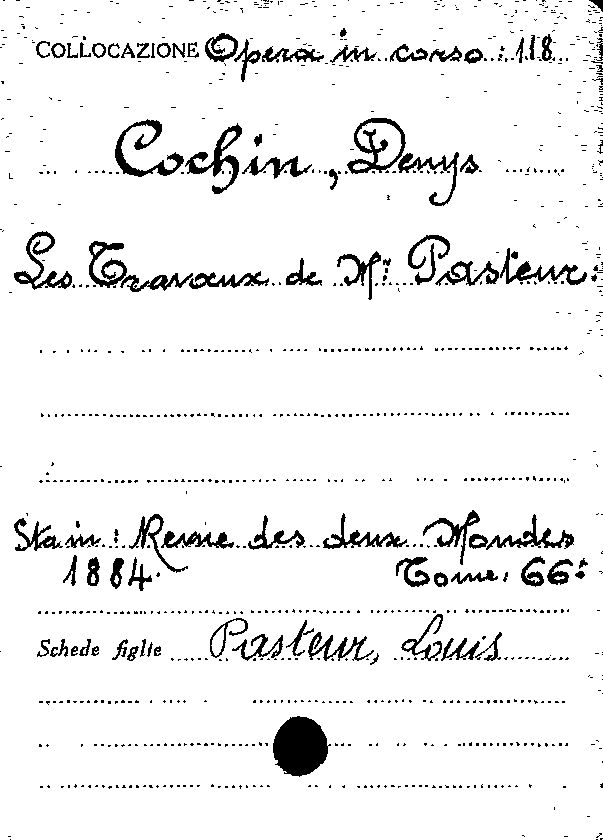 COLLOCAZIONE Opera in corso: 118
Cochin, Denys
Les Travaux de Mr Pasteur:
Sta in: Revue des deux Mondes
1884. Tome: 66º
Schede figlie Pasteur, Louis